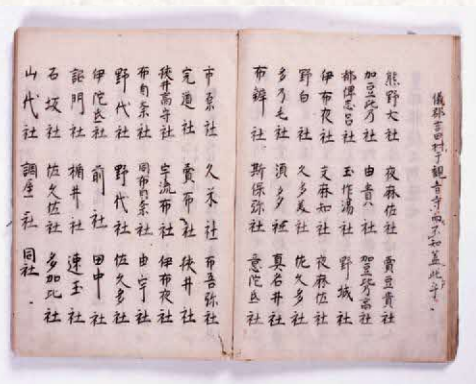 熊野大社 夜麻佐社 賣豆貴社
加豆比乃社 由貴社 加豆比乃高社
都俾志呂社 玉作湯社 野城社
伊布夜社 支麻知社 夜麻佐社
野白社 久多美社 佐久多社
多乃毛社 須多社 真名井社
布辨社 斯保弥社 意陀支社
市原社 久米社 布吾弥社
完道社 賣布社 狭井社
狭井高守社 宇流布社 伊布夜社
布自奈社 同布自奈社 由宇社
野代社 野代社 佐久多社
伊陀支社 前社 田中社
詔門社 楯井社 速玉社
石坂社 佐久佐社 多加比社
山代社 調屋社 同社